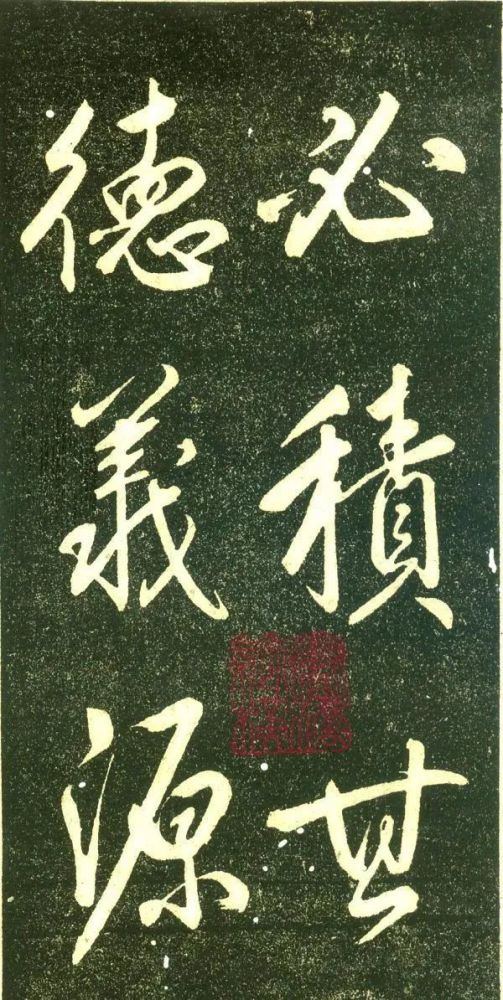 必積其
德義源